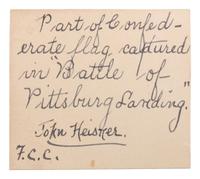 Part of Confed-
erate flag captured
in "Battle of
Pittsburg Landing."
John Heisner.
F.C.C.